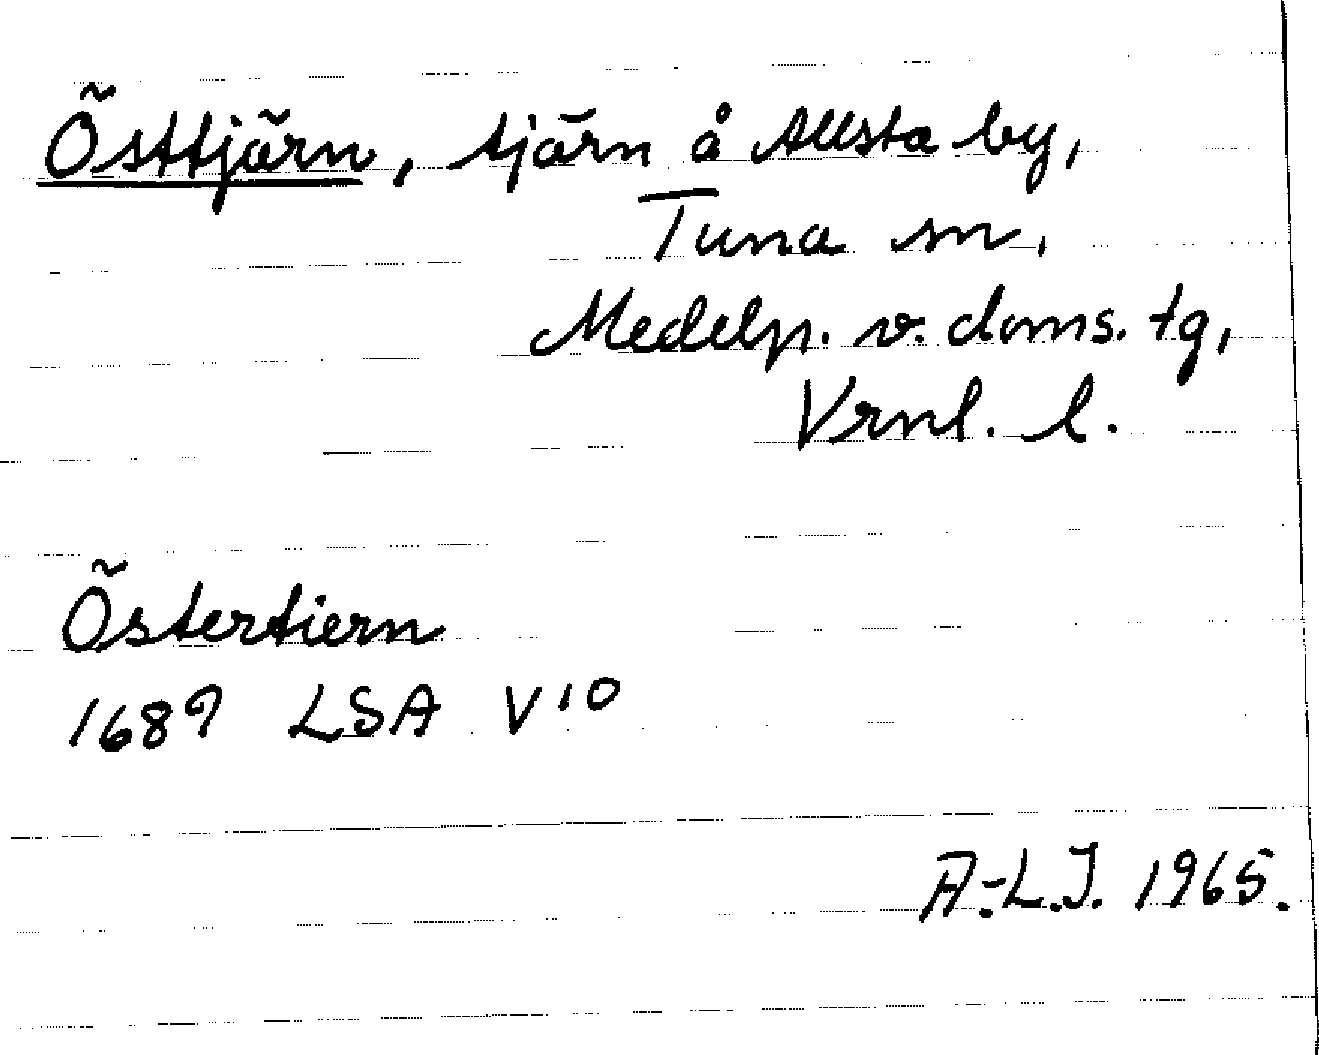 Östtjärn, tjärn å Allsta by,
Tuna sn,
Medelp. v. doms. tg,
Vrnl. l.
Östertiern
1689 LSA V10
A.-L.J. 1965.